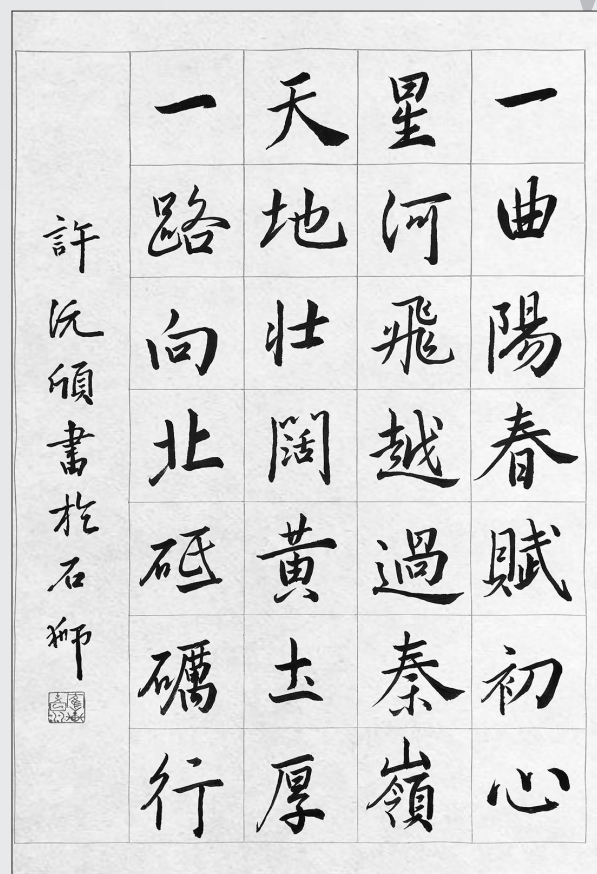 一曲陽春賦初心
星河飛越過秦嶺
天地壯闊黃土厚
一路向北砥礪行
許沅頎書於石獅